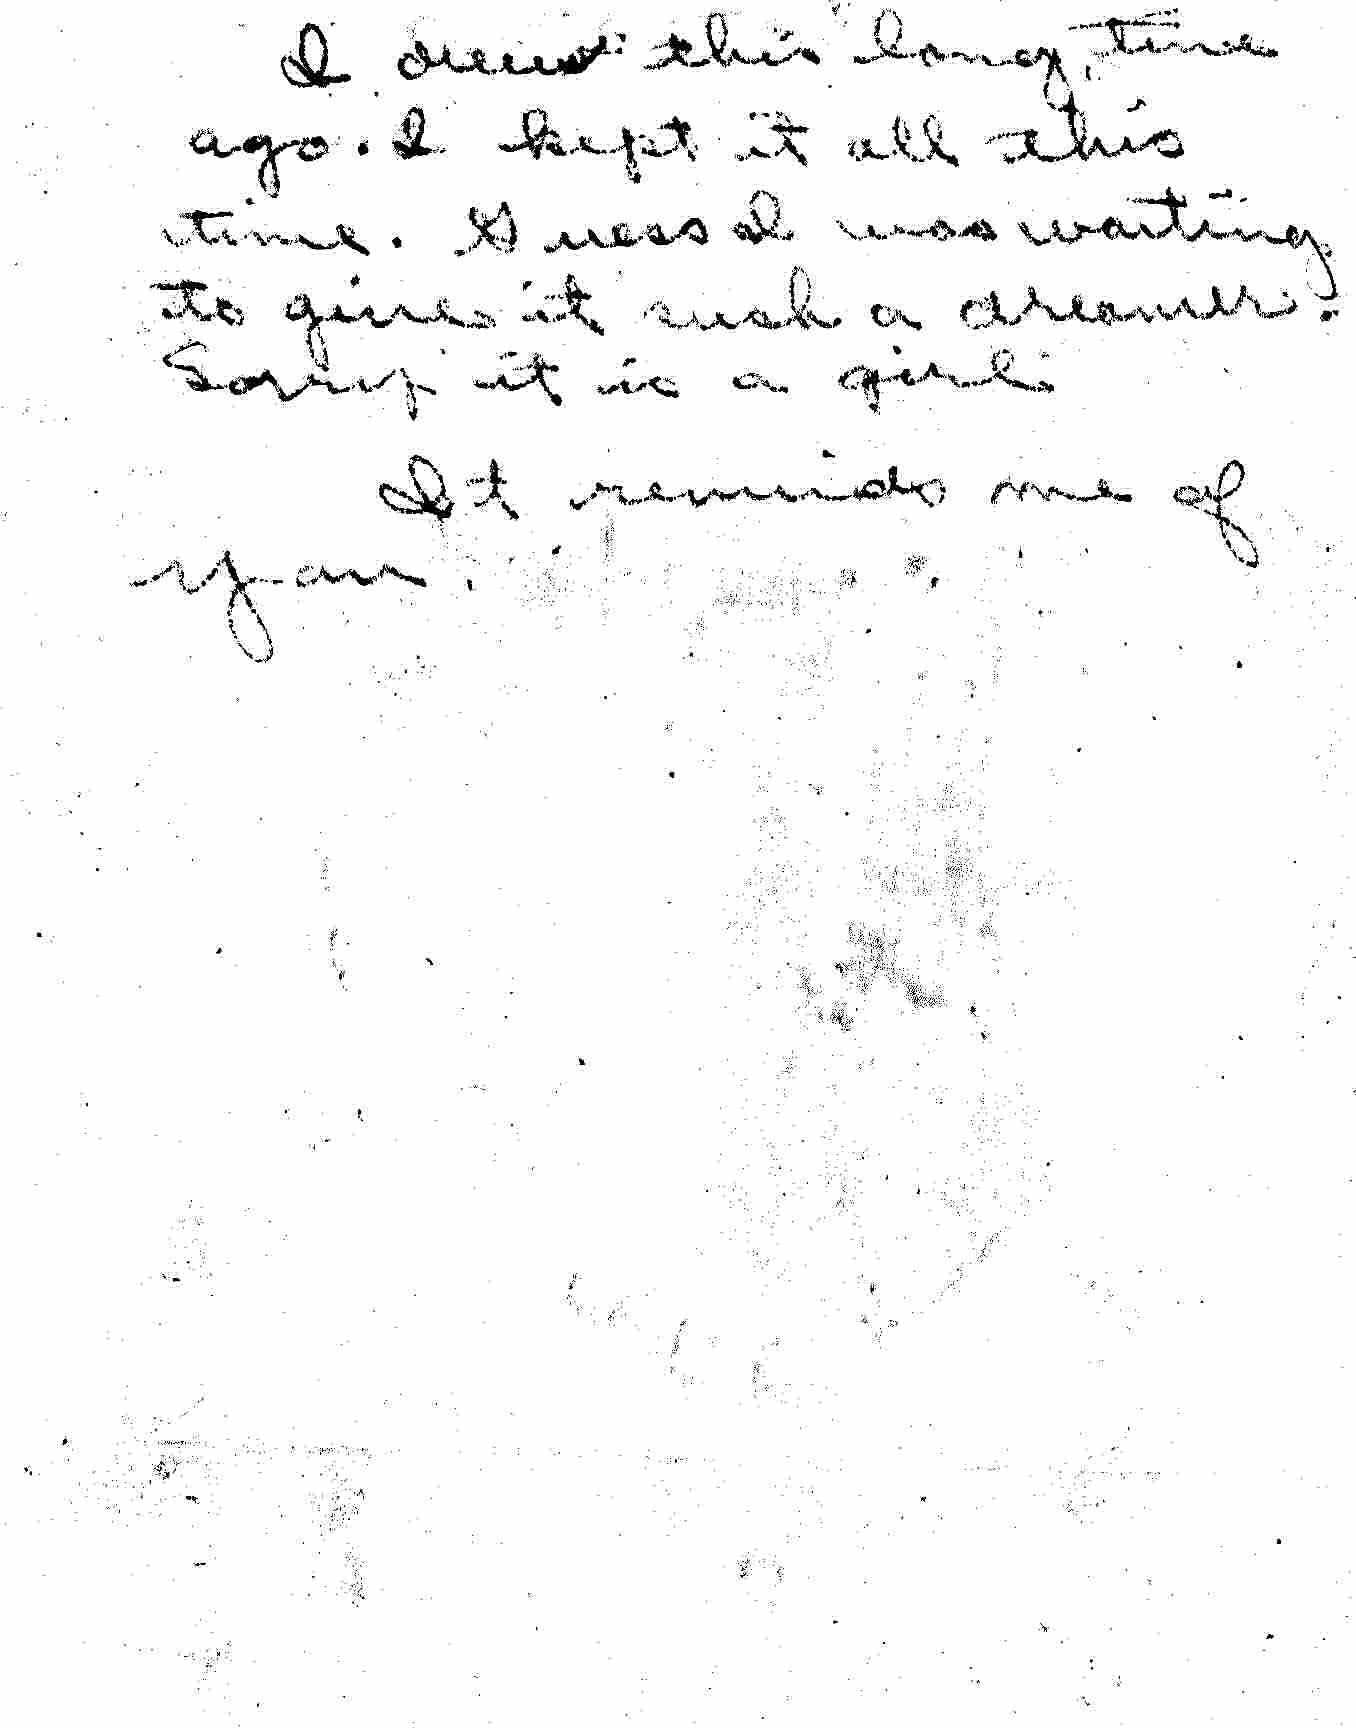 I drew this long, time
ago. I kept it all this
time. Guess I was waiting
to give it such a dreamer.
Sorry it is a girl
It reminds me of
you.